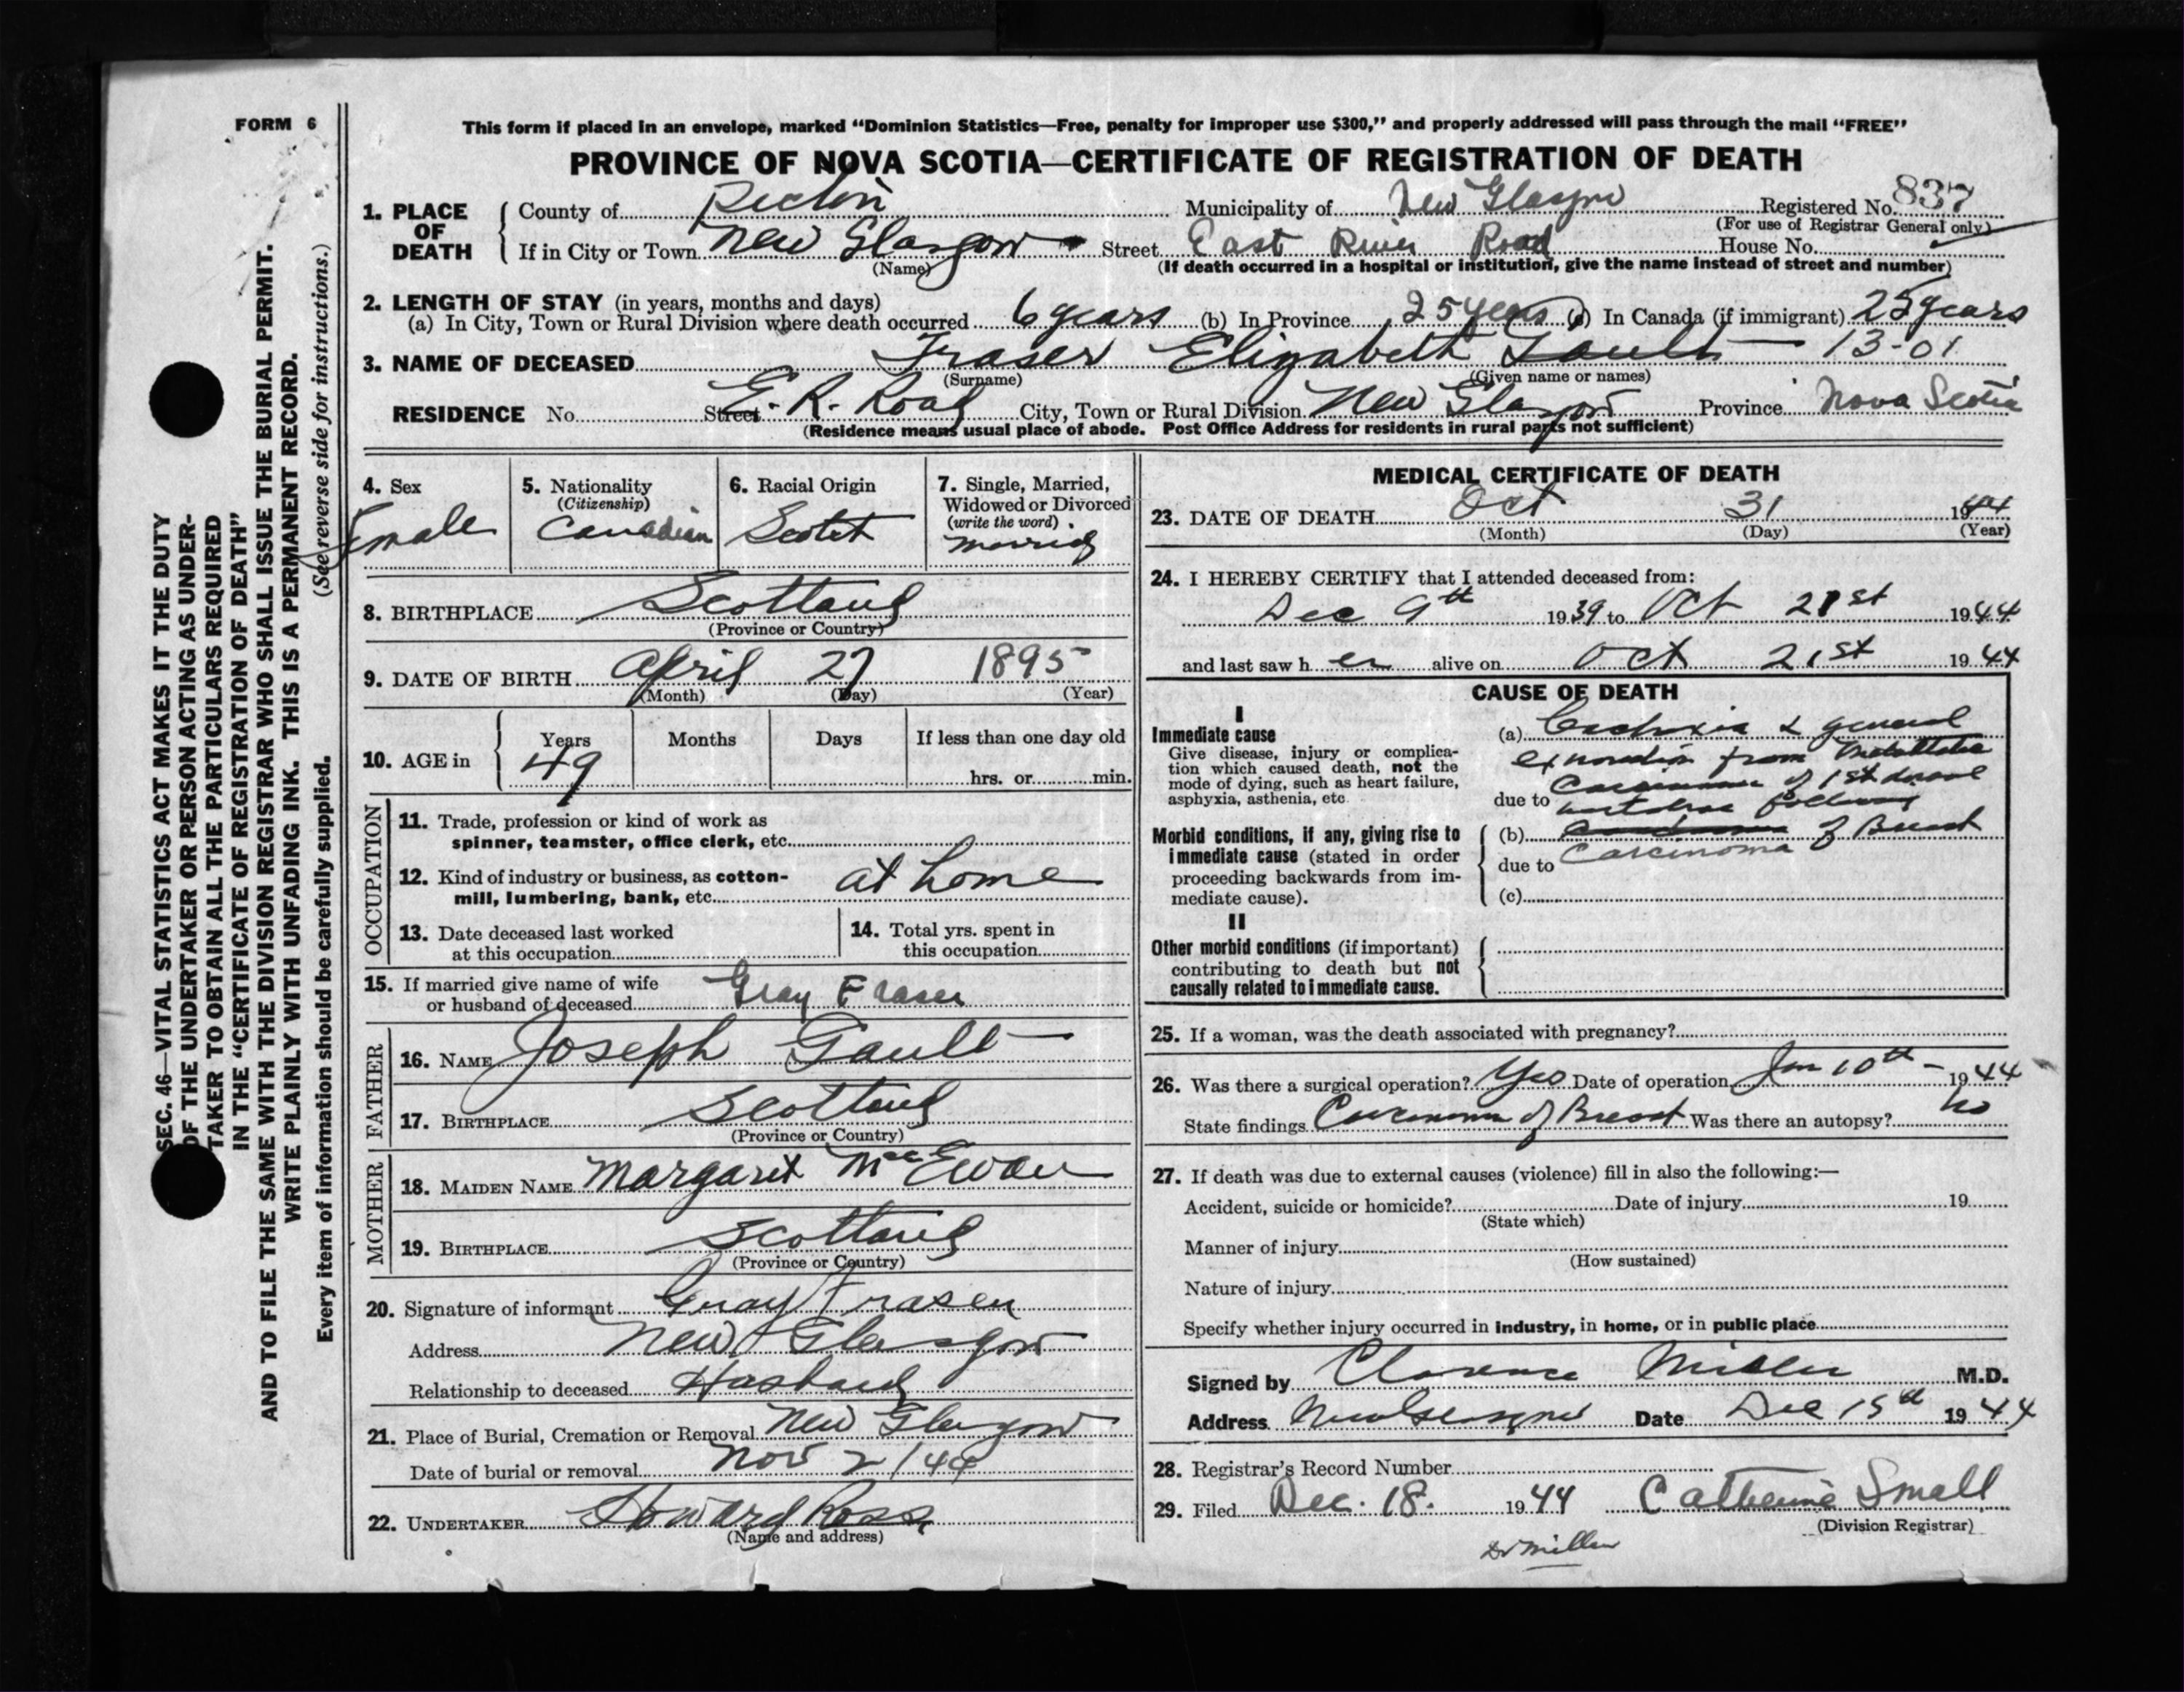 FORM 6
This form if placed in an envelope, marked “Dominion Statistics—Free, penalty for improper use $300,” and properly addressed will pass through the mail “FREE”
PROVINCE OF NOVA SCOTIA—CERTIFICATE OF REGISTRATION OF DEATH
1. PLACE OF DEATH
County of Pictou Municipality of New Glasgow Registered No. 837
(For use of Registrar General only)
If in City or Town New Glasgow Street East River Road House No.
(Name)
(If death occurred in a hospital or institution, give the name instead of street and number)
2. LENGTH OF STAY (in years, months and days)
(a) In City, Town or Rural Division where death occurred 6 years (b) In Province 25 years (c) In Canada (if immigrant) 25 years
3. NAME OF DECEASED Fraser Elizabeth Gault 13-01
(Surname) (Given name or names)
RESIDENCE No. Street E. R. Road City, Town or Rural Division New Glasgow Province Nova Scotia
(Residence means usual place of abode. Post Office Address for residents in rural parts not sufficient)
4. Sex
Female
5. Nationality
(Citizenship)
Canadian
6. Racial Origin
Scotch
7. Single, Married,
Widowed or Divorced
(write the word)
Married
8. BIRTHPLACE Scotland
(Province or Country)
9. DATE OF BIRTH April 27 1895
(Month) (Day) (Year)
10. AGE in
Years Months Days If less than one day old
49
hrs. or min.
OCCUPATION
11. Trade, profession or kind of work as
spinner, teamster, office clerk, etc.
12. Kind of industry or business, as cotton-
mill, lumbering, bank, etc. at home
13. Date deceased last worked
at this occupation
14. Total yrs. spent in
this occupation
15. If married give name of wife
or husband of deceased Gray Fraser
FATHER
16. NAME Joseph Gault
17. BIRTHPLACE Scotland
(Province or Country)
MOTHER
18. MAIDEN NAME Margaret MacEwan
19. BIRTHPLACE Scotland
(Province or Country)
20. Signature of informant Gray Fraser
Address New Glasgow
Relationship to deceased Husband
21. Place of Burial, Cremation or Removal New Glasgow
Date of burial or removal Nov 2/44
22. UNDERTAKER Howard Ross
(Name and address)
MEDICAL CERTIFICATE OF DEATH
23. DATE OF DEATH Oct 31 1944
(Month) (Day) (Year)
24. I HEREBY CERTIFY that I attended deceased from:
Dec 9th 1939 to Oct 21st 1944
and last saw her alive on Oct 21st 1944
CAUSE OF DEATH
I
Immediate cause
Give disease, injury or complica-
tion which caused death, not the
mode of dying, such as heart failure,
asphyxia, asthenia, etc.
(a) Cachexia & general
from
Carcinoma of 1st dorsal
due to vertebrae following
Morbid conditions, if any, giving rise to
immediate cause (stated in order
proceeding backwards from im-
mediate cause).
(b) of Breast
due to Carcinoma
(c)
II
Other morbid conditions (if important)
contributing to death but not
causally related to immediate cause.
25. If a woman, was the death associated with pregnancy?
26. Was there a surgical operation? Yes Date of operation Jan 10th 1944
State findings Carcinoma of Breast Was there an autopsy? no
27. If death was due to external causes (violence) fill in also the following:—
Accident, suicide or homicide? Date of injury 19
(State which)
Manner of injury
(How sustained)
Nature of injury
Specify whether injury occurred in industry, in home, or in public place
Signed by Clarence Miller M.D.
Address New Glasgow Date Dec 15th 1944
28. Registrar's Record Number
29. Filed Dec. 18. 1944 Catherine Small
(Division Registrar)
Dr Miller
SEC. 46—VITAL STATISTICS ACT MAKES IT THE DUTY
OF THE UNDERTAKER OR PERSON ACTING AS UNDER-
TAKER TO OBTAIN ALL THE PARTICULARS REQUIRED
IN THE “CERTIFICATE OF REGISTRATION OF DEATH”
AND TO FILE THE SAME WITH THE DIVISION REGISTRAR WHO SHALL ISSUE THE BURIAL PERMIT.
WRITE PLAINLY WITH UNFADING INK. THIS IS A PERMANENT RECORD.
Every item of information should be carefully supplied. (See reverse side for instructions.)